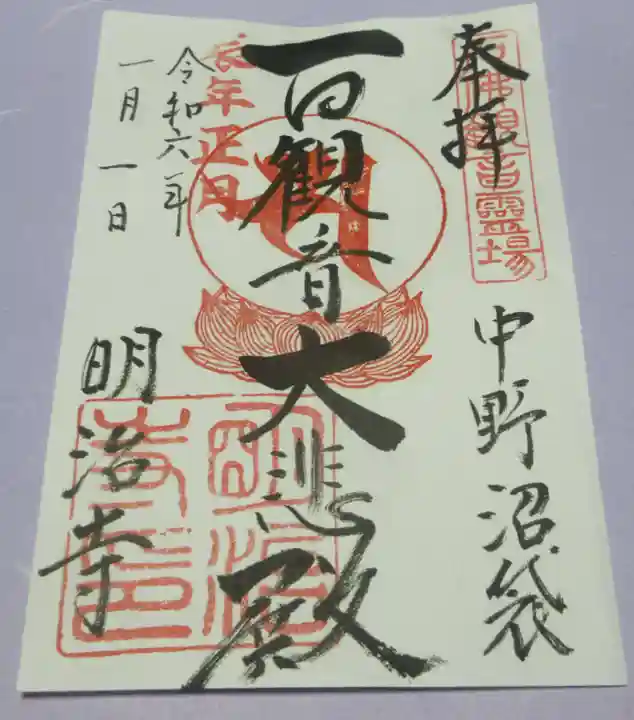 奉拝
百佛觀音靈場
中野沼袋
百観音大悲殿
辰年正月
令和六年
一月一日
明治寺